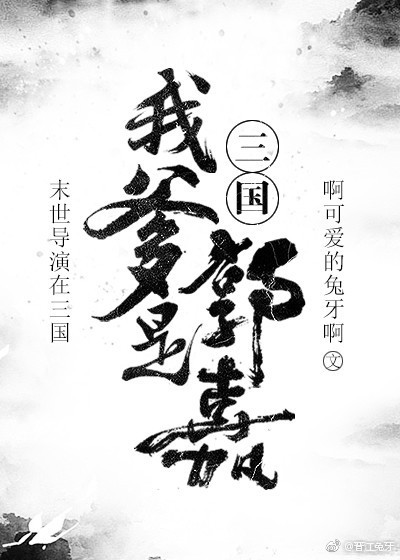 三国
我爹是郭嘉
末世导演在三国
啊可爱的兔牙啊文
@晋江兔牙